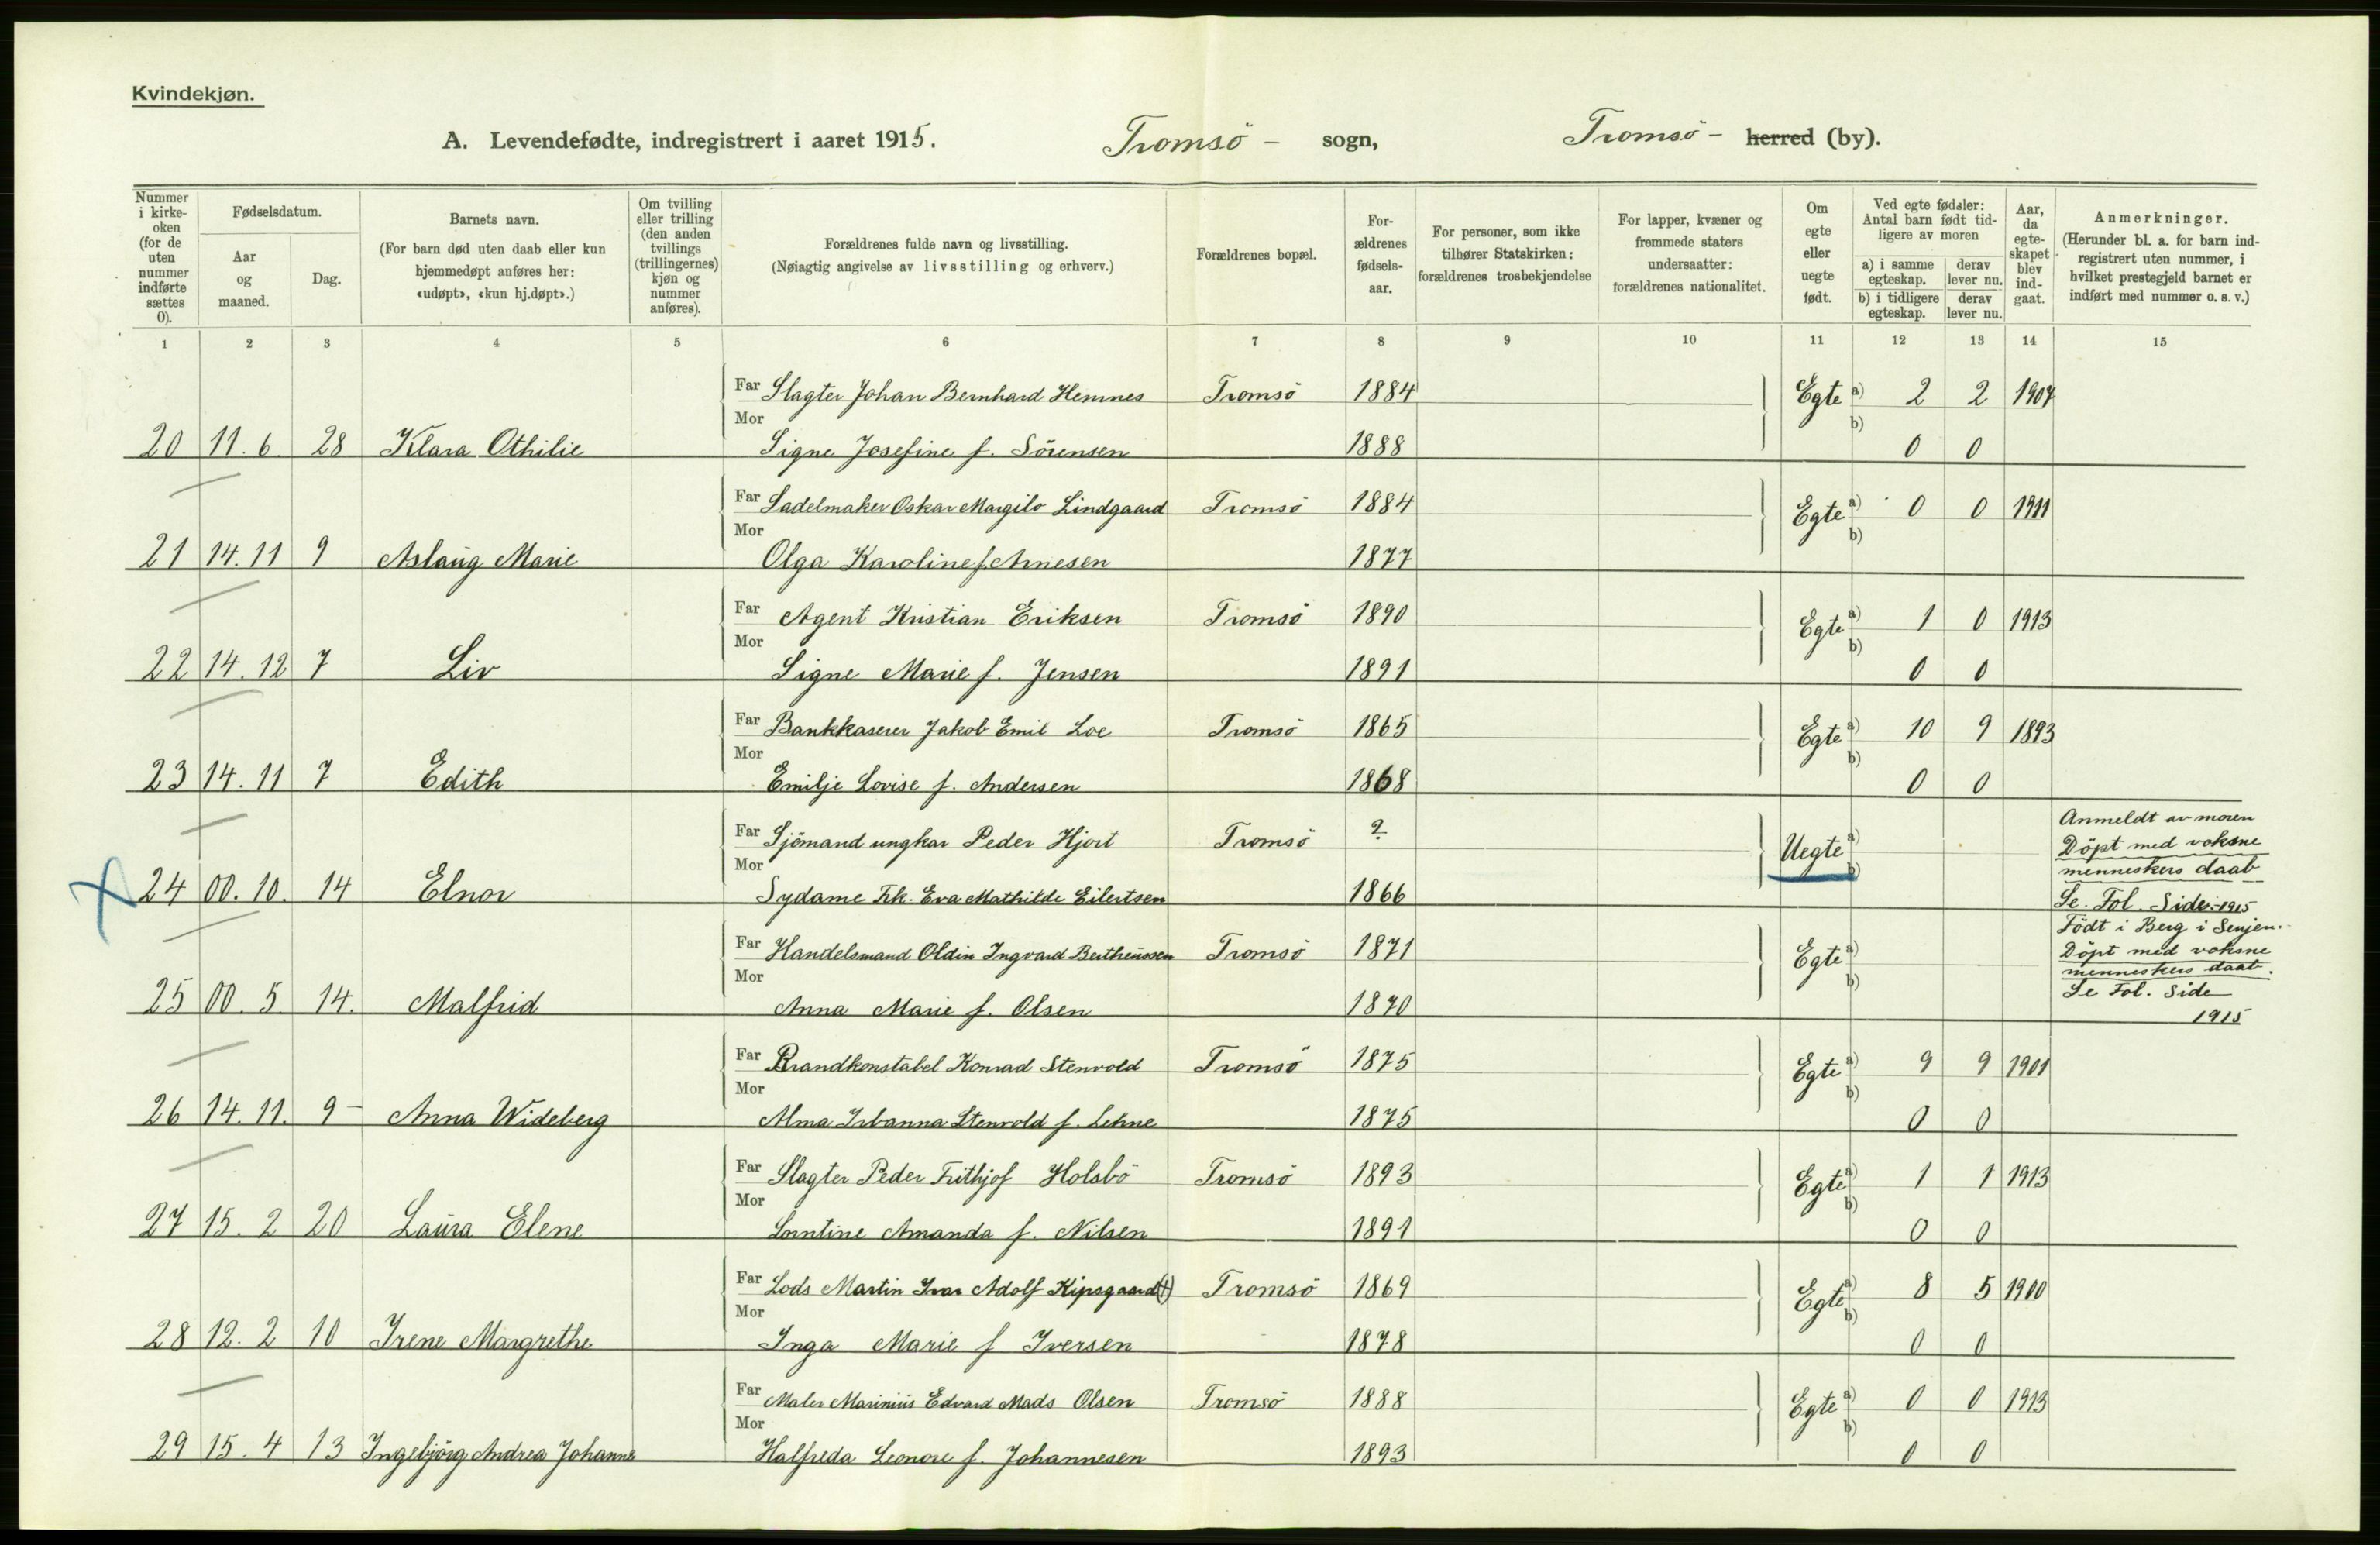 Kvindekjøn.
A. Levendefødte, indregistrert i aaret 1915. Tromsö - sogn, Tromsö - herred (by).
Nummer i kirke-oken (for de uten nummer indførte sættes 0).
Fødselsdatum.
Aar og maaned.
Dag.
Barnets navn.
(For barn død uten daab eller kun hjemmedøpt anføres her: «udøpt», «kun hj.døpt».)
Om tvilling eller trilling (den anden tvillings (trillingernes) kjøn og nummer anføres).
Forældrenes fulde navn og livsstilling.
(Nøiagtig angivelse av livsstilling og erhverv.)
Forældrenes bopæl.
For-ældrenes fødsels-aar.
For personer, som ikke tilhører Statskirken: forældrenes trosbekjendelse
For lapper, kvæner og fremmede staters undersaatter: forældrenes nationalitet.
Om egte eller uegte født.
Ved egte fødsler: Antal barn født tid-ligere av moren
a) i samme egteskap.
derav lever nu.
b) i tidligere egteskap.
derav lever nu.
Aar, da egte-skapet blev ind-gaat.
Anmerkninger.
(Herunder bl. a. for barn ind-registrert uten nummer, i hvilket prestegjeld barnet er indført med nummer o. s. v.)
1 2 3 4 5 6 7 8 9 10 11 12 13 14 15
Far Slagter Johan Bernhard Hemnes Tromsö 1884 Egte a) 2 2 1907
Mor b)
20 11. 6 28 Klara Othilie Signe Josefine f. Sörensen 1888 0 0
Far Sadelmaker Oskar Margilo Lindgaard Tromsö 1884 Egte a) 0 0 1911
Mor b)
21 14. 11 9 Aslaug Marie Olga Karoline f. Arnesen 1877
Far Agent Kristian Eriksen Tromsö 1890 Egte a) 1 0 1913
Mor b)
22 14. 12 7 Liv Signe Marie f. Jensen 1891 0 0
Far Bankkaserer Jakob Emil Loe Tromsö 1865 Egte a) 10 9 1893
Mor b)
23 14. 11 7 Edith Emilje Lovise f. Andersen 1868 0 0
Far Sjömand ungkar Peder Hjort Tromsö ? Uegte a) Anmeldt av moren
Mor b) Döpt med voksne
menneskers daab
24 00. 10. 14 Elnor Sydame Frk. Eva Mathilde Eilertsen 1866 Se. Fol. Side. 1915
Födt i Berg i Senjen.
Far Handelsmand Oldin Ingvard Bertheussen Tromsö 1871 Egte a) Döpt med voksne
Mor b) menneskers daab.
25 00. 5 14. Malfrid Anna Marie f. Olsen 1870 Se Fol. Side
1915
Far Brandkonstabel Konrad Stenvold Tromsö 1875 Egte a) 9 9 1901
Mor b)
26 14. 11. 9 - Anna Wideberg Alma Stenvold f. Lehne 1875 0 0
Far Slagter Peder Frithjof Holsbö Tromsö 1893 Egte a) 1 1 1913
Mor b)
27 15. 2 20 Laura Elene Amanda f. Nilsen 1891 0 0
Far Lods Martin Ivar Adolf Kipsgaard (†) Tromsö 1869 Egte a) 8 5 1900
Mor b)
28 12. 2 10 Irene Margrethe Inga Marie f Iversen 1878 0 0
Far Maler Marinius Edvard Mads Olsen Tromsö 1888 Egte a) 0 0 1913
Mor b)
29 15. 4 13 Ingebjörg Andrea Johanne Halfreda Leonore f. Johannesen 1893 0 0